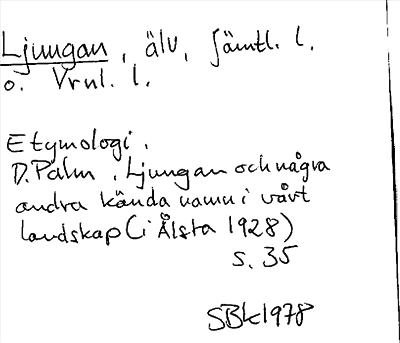 Ljungan, älv, Jämtl. l.
o. Vrnl. l.
Etymologi.
D. Palm, Ljungan och några
andra kända namn i vårt
landskap (i Ålsta 1928)
s. 35
SBk 1978